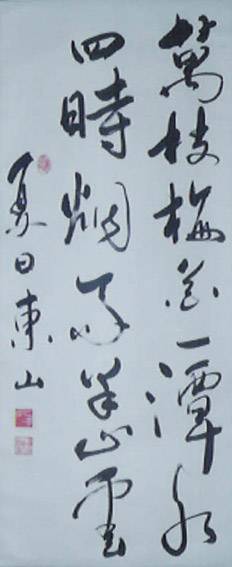 萬枝梅花一潭水
四時烟雨半山雲
夏日東山